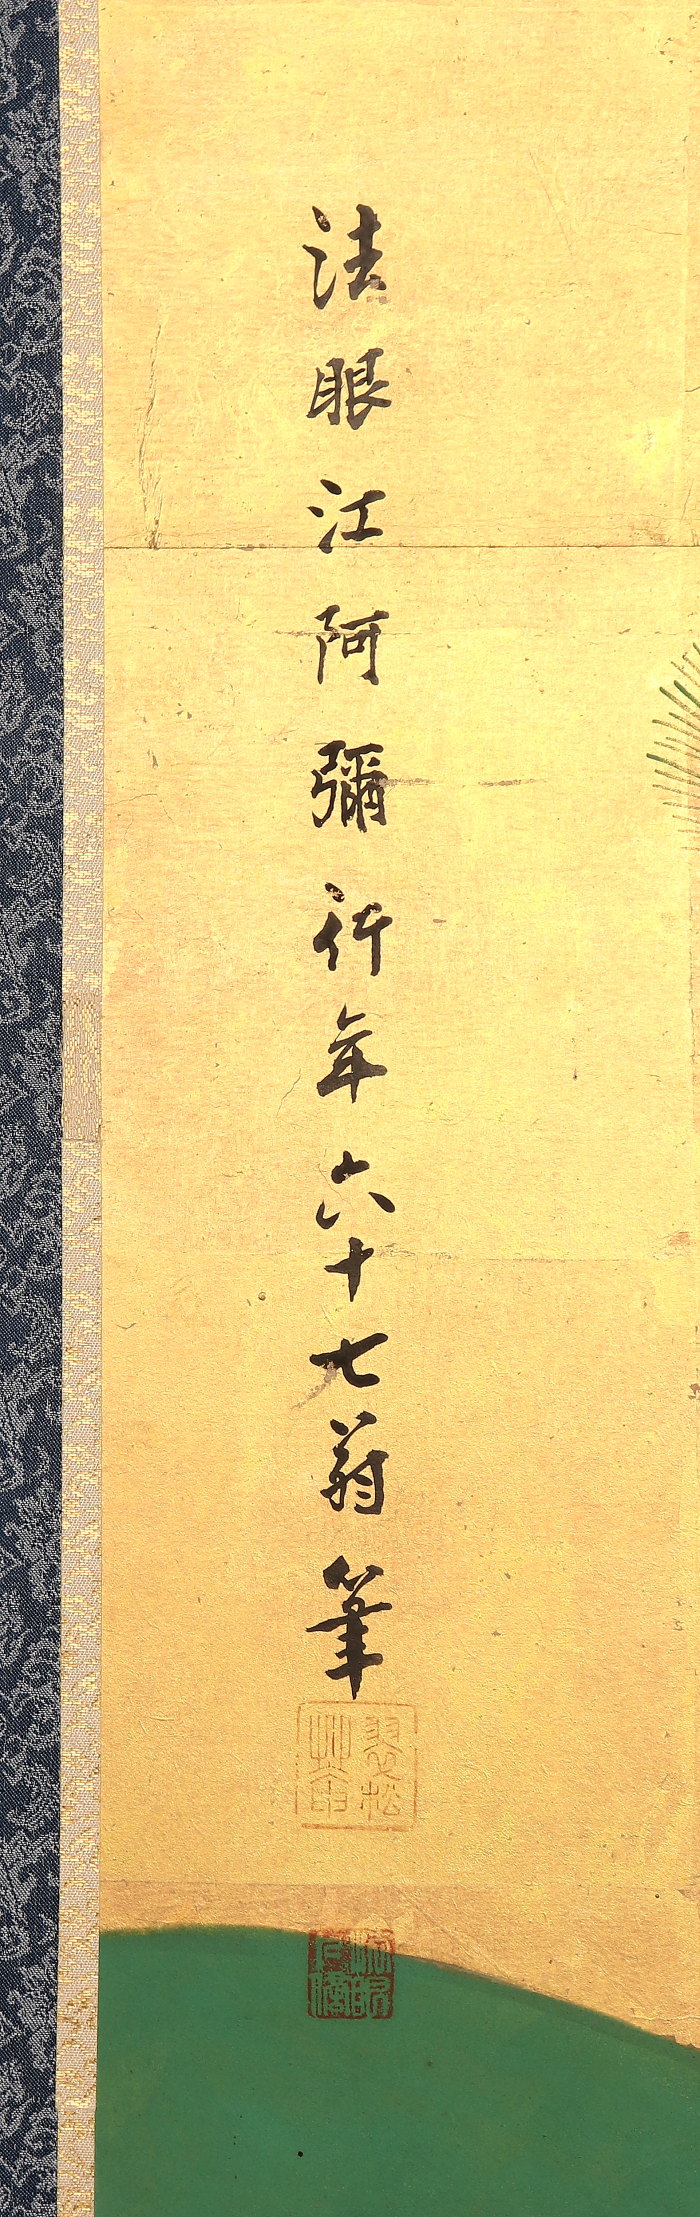 法眼江阿彌行年六十七翁筆